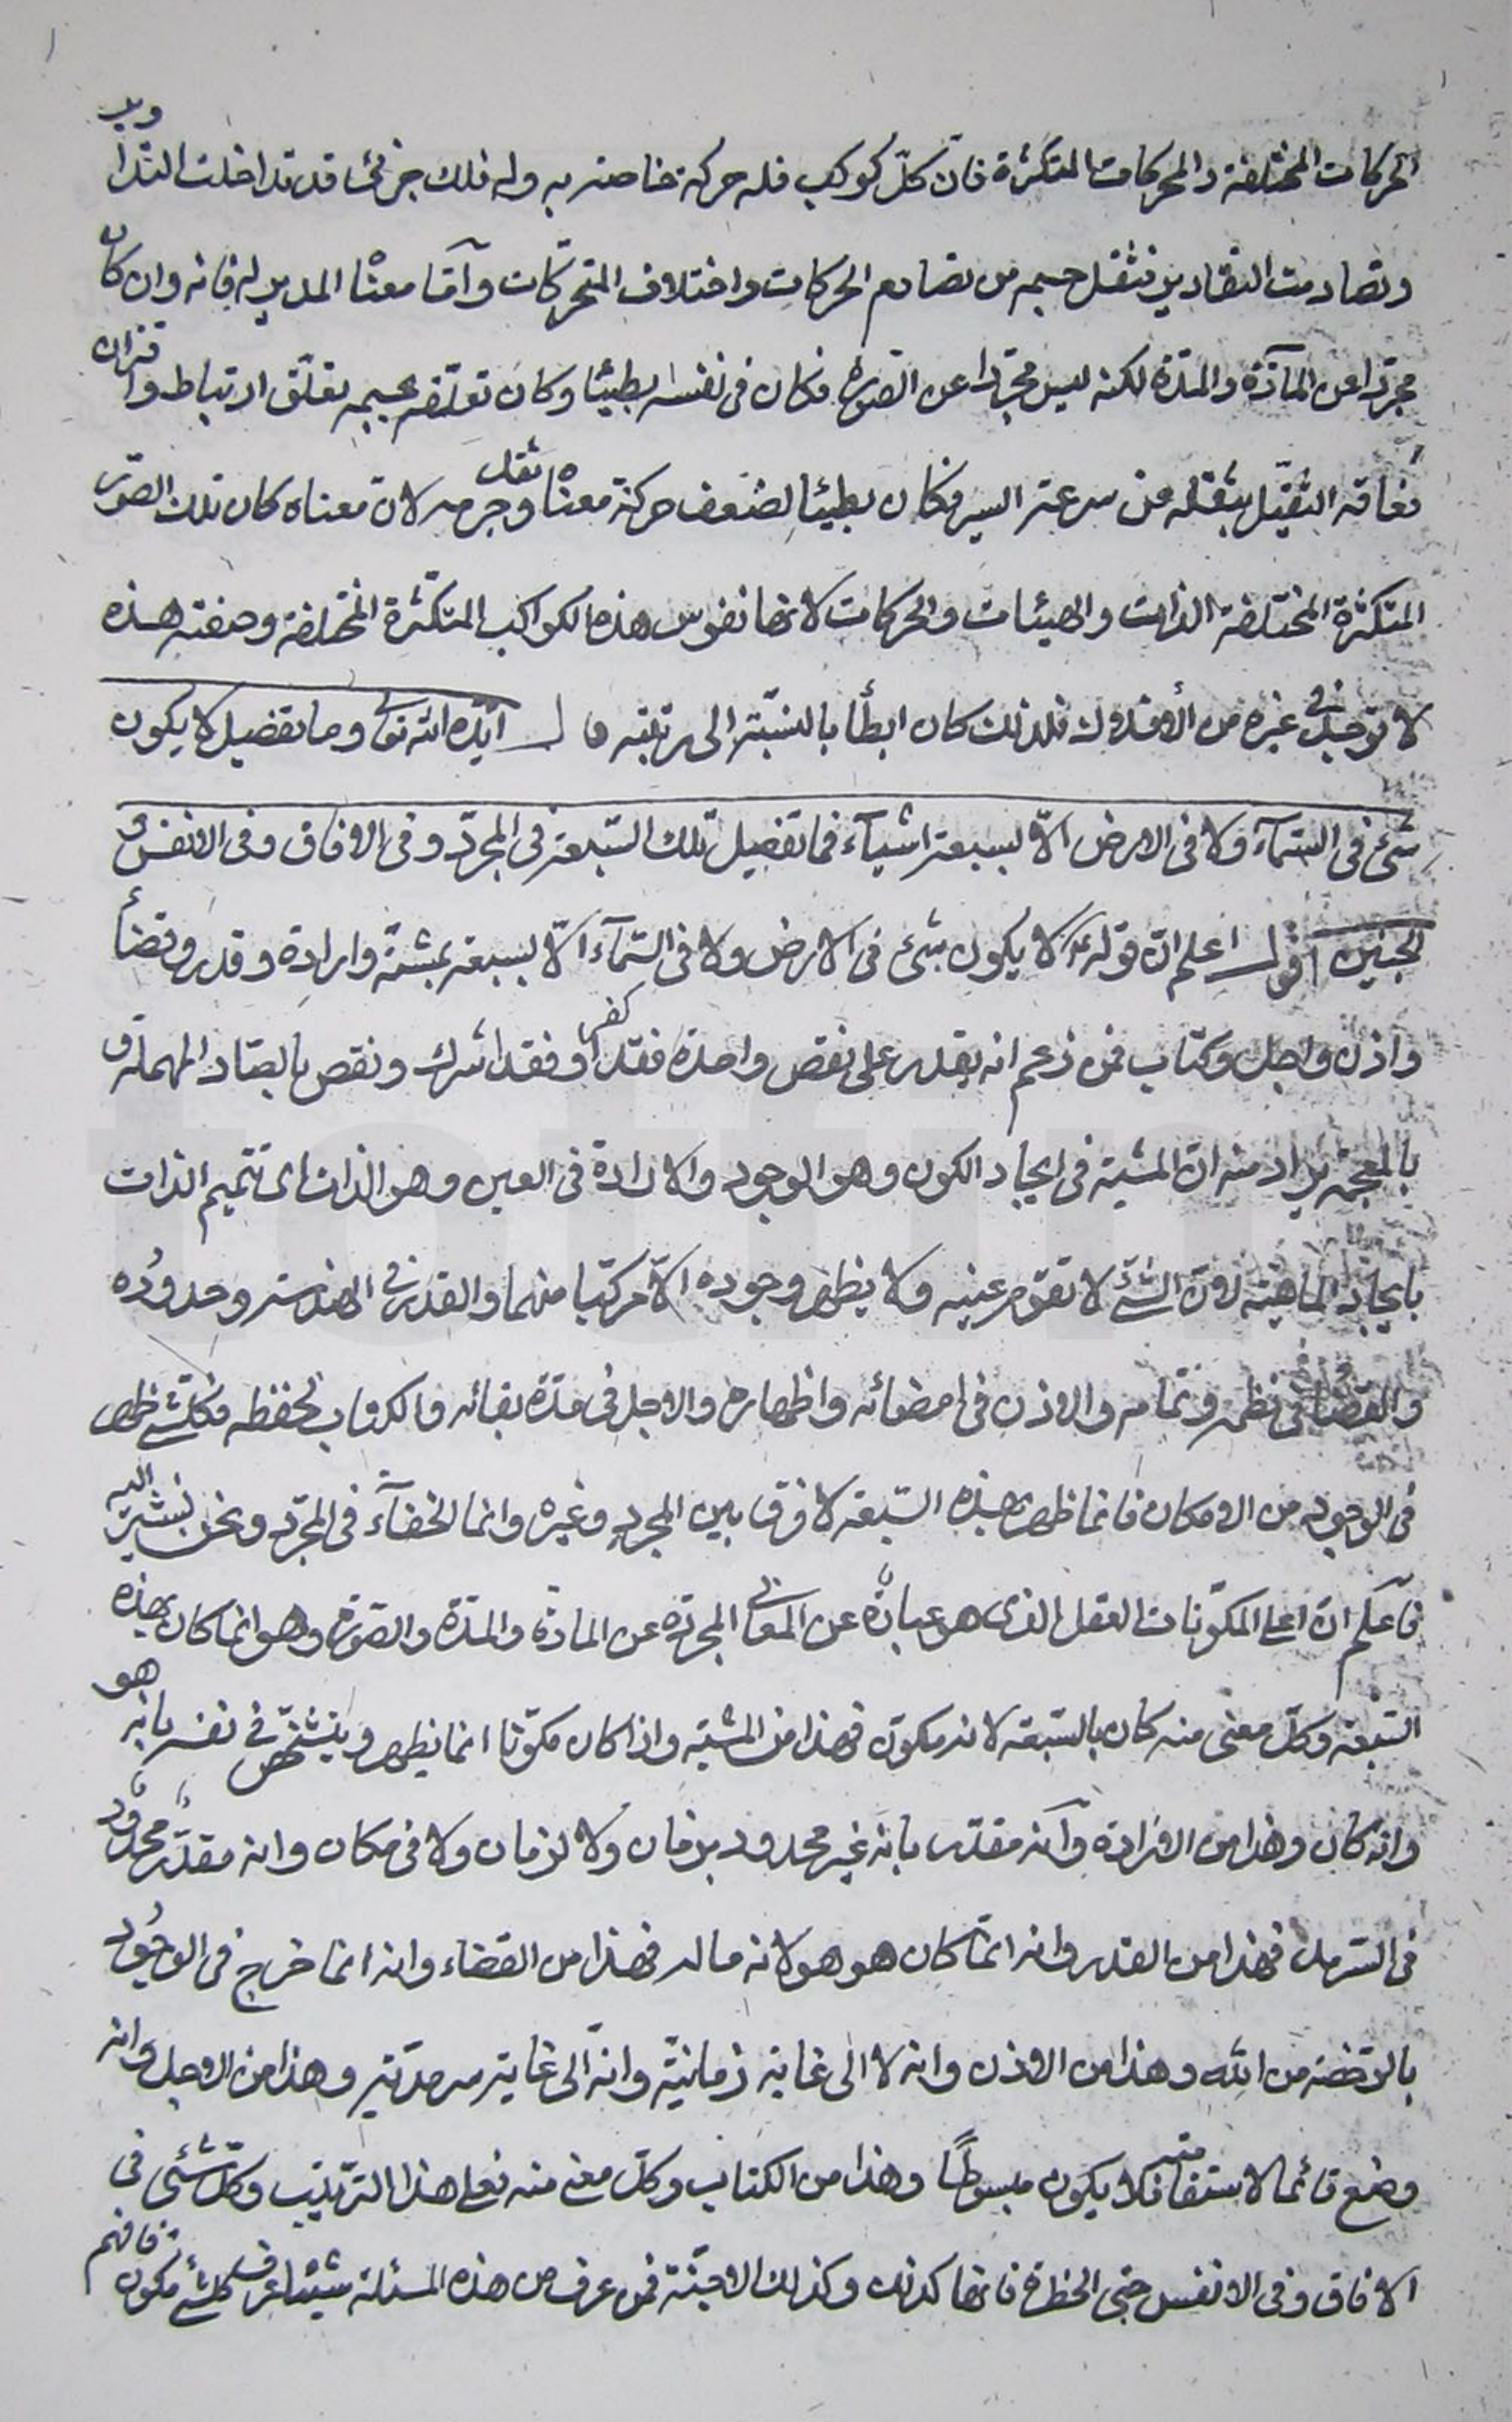 الحركات المختلفة والمحركات المتكثرة فان كلّ كوكب فله حركة خاصة به وله فلك جزئى قد تداخلت التداوير
وتصادمت التقادير فثقل جسمه من تصادم الحركات واختلاف المتحركات وآمّا معناه المدبر له فانه وان كان
مجردا عن المآدّة والمدّة لكنه ليس مجردا عن الصورة فكان فى نفسه بطيئا وكان تعلّقه بجسمه تعلّق ارتباط واقتران
فعاقه الثقيل بثقله عن سرعة السير فكان بطيئا لضعف حركة معناه وثقل جرمه لانّ معناه كان تلك الصور
المتكثرة المختلفة الذات والهيئات والحركات لانها نفوس هذه الكواكب المتكثّرة المختلفة وصفته هذه
لا توجد فى غيره من الأفلاك فلذلك كان ابطأ بالنسبة الى رتبته قال ايّده الله تعالى وما تفصيل لا يكون
شئ فى السّمآء ولا فى الارض الاّ بسبعة اشيآء فما تفصيل تلك السّبعة فى المجرّد وفى الافاق وفى الانفس فى
الجنين اقول اعلم انّ قوله ع لا يكون شئ فى الارض ولا فى السّمآء الاّ بسبعة بمشيّة وارادة وقدر وقضاء
واذن واجل وكتاب فمن زعم انه يقدر على نقص واحدة فقد كفر او فقد اشرك ونقص بالصّاد المهملة و
بالمعجمة يراد منه انّ المشية فى ايجاد الكون وهو الوجود والارادة فى العين وهو الذات اى تتميم الذات
بايجاد الماهيّة لانّ الشئ لا تقوم عينه ولا يظهر وجوده الاّ مركّبا منهما والقدر فى الهندسة وحدوده
والقضاء فى نظمه وتمامه والاذن فى امضائه واظهاره والاجل فى مدّة بقائه والكتاب لحفظه فكلّ شئ ظهر
فى الوجود من الامكان فانما ظهر بهذه السّبعة لا فرق بين المجرد وغيره وانما الخفآء فى المجرّد ونحن نشير اليه
فآعلم انّ اعلى المكوّنات العقل الذى هو عبارة عن المعانى المجردة عن المادّة والمدّة والصّورة وهو انما كان بهذه
السّبعة وكلّ معنى منه كان بالسّبعة لانه مكوّن فهذا من المشية واذا كان مكوّنا انما يظهر ويتشخّص فى نفسه بانه هو
وانه كان وهذا من الارادة وآنه مقدّر بانه غير محدود بزمان ولا لزمان ولا فى مكان وانه مقدّر محدود
فى السّرمد فهذا من القدر وانه انّما كان هو هو لانه ماله فهذا من القضاء وانه انما خرج فى الوجود
بالرّخصة من الله وهذا من الاذن وانه لا الى غاية زمانيّة وانّه الى غاية سرمديّة وهذا من الاجل وانه
وضع قائما لاستقامته فلا يكون مبسوطًا وهذا من الكتاب وكلّ معنى منه فعلى هذا الترتيب وكلّ شئ فى
الافاق وفى الانفس حتى الخطرة فانها كذلك وكذلك الاجنّة فمن عرف من هذه المسئلة شيئا عرف كلّ شئ مكون فافهم